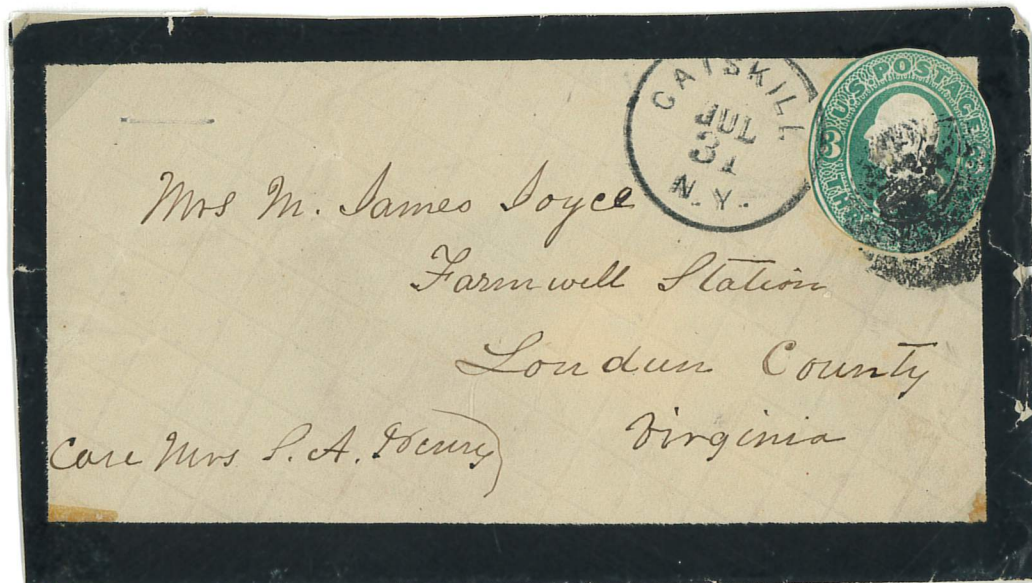 CATSKILL
JUL
31
N.Y.
U.S. POSTAGE
3
Mrs M. James Joyce
Farmwell Station
Loudun County
Virginia
Care Mrs S. A. Henry